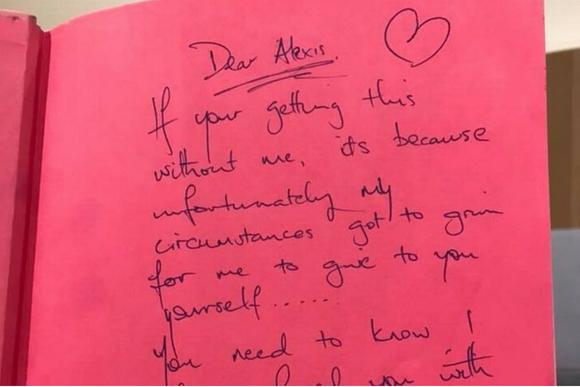 Dear Alexis.
If your getting this
without me, its because
unfortunately my
circumstances got to grim
for me to give to you
yourself......
You need to know I
you with